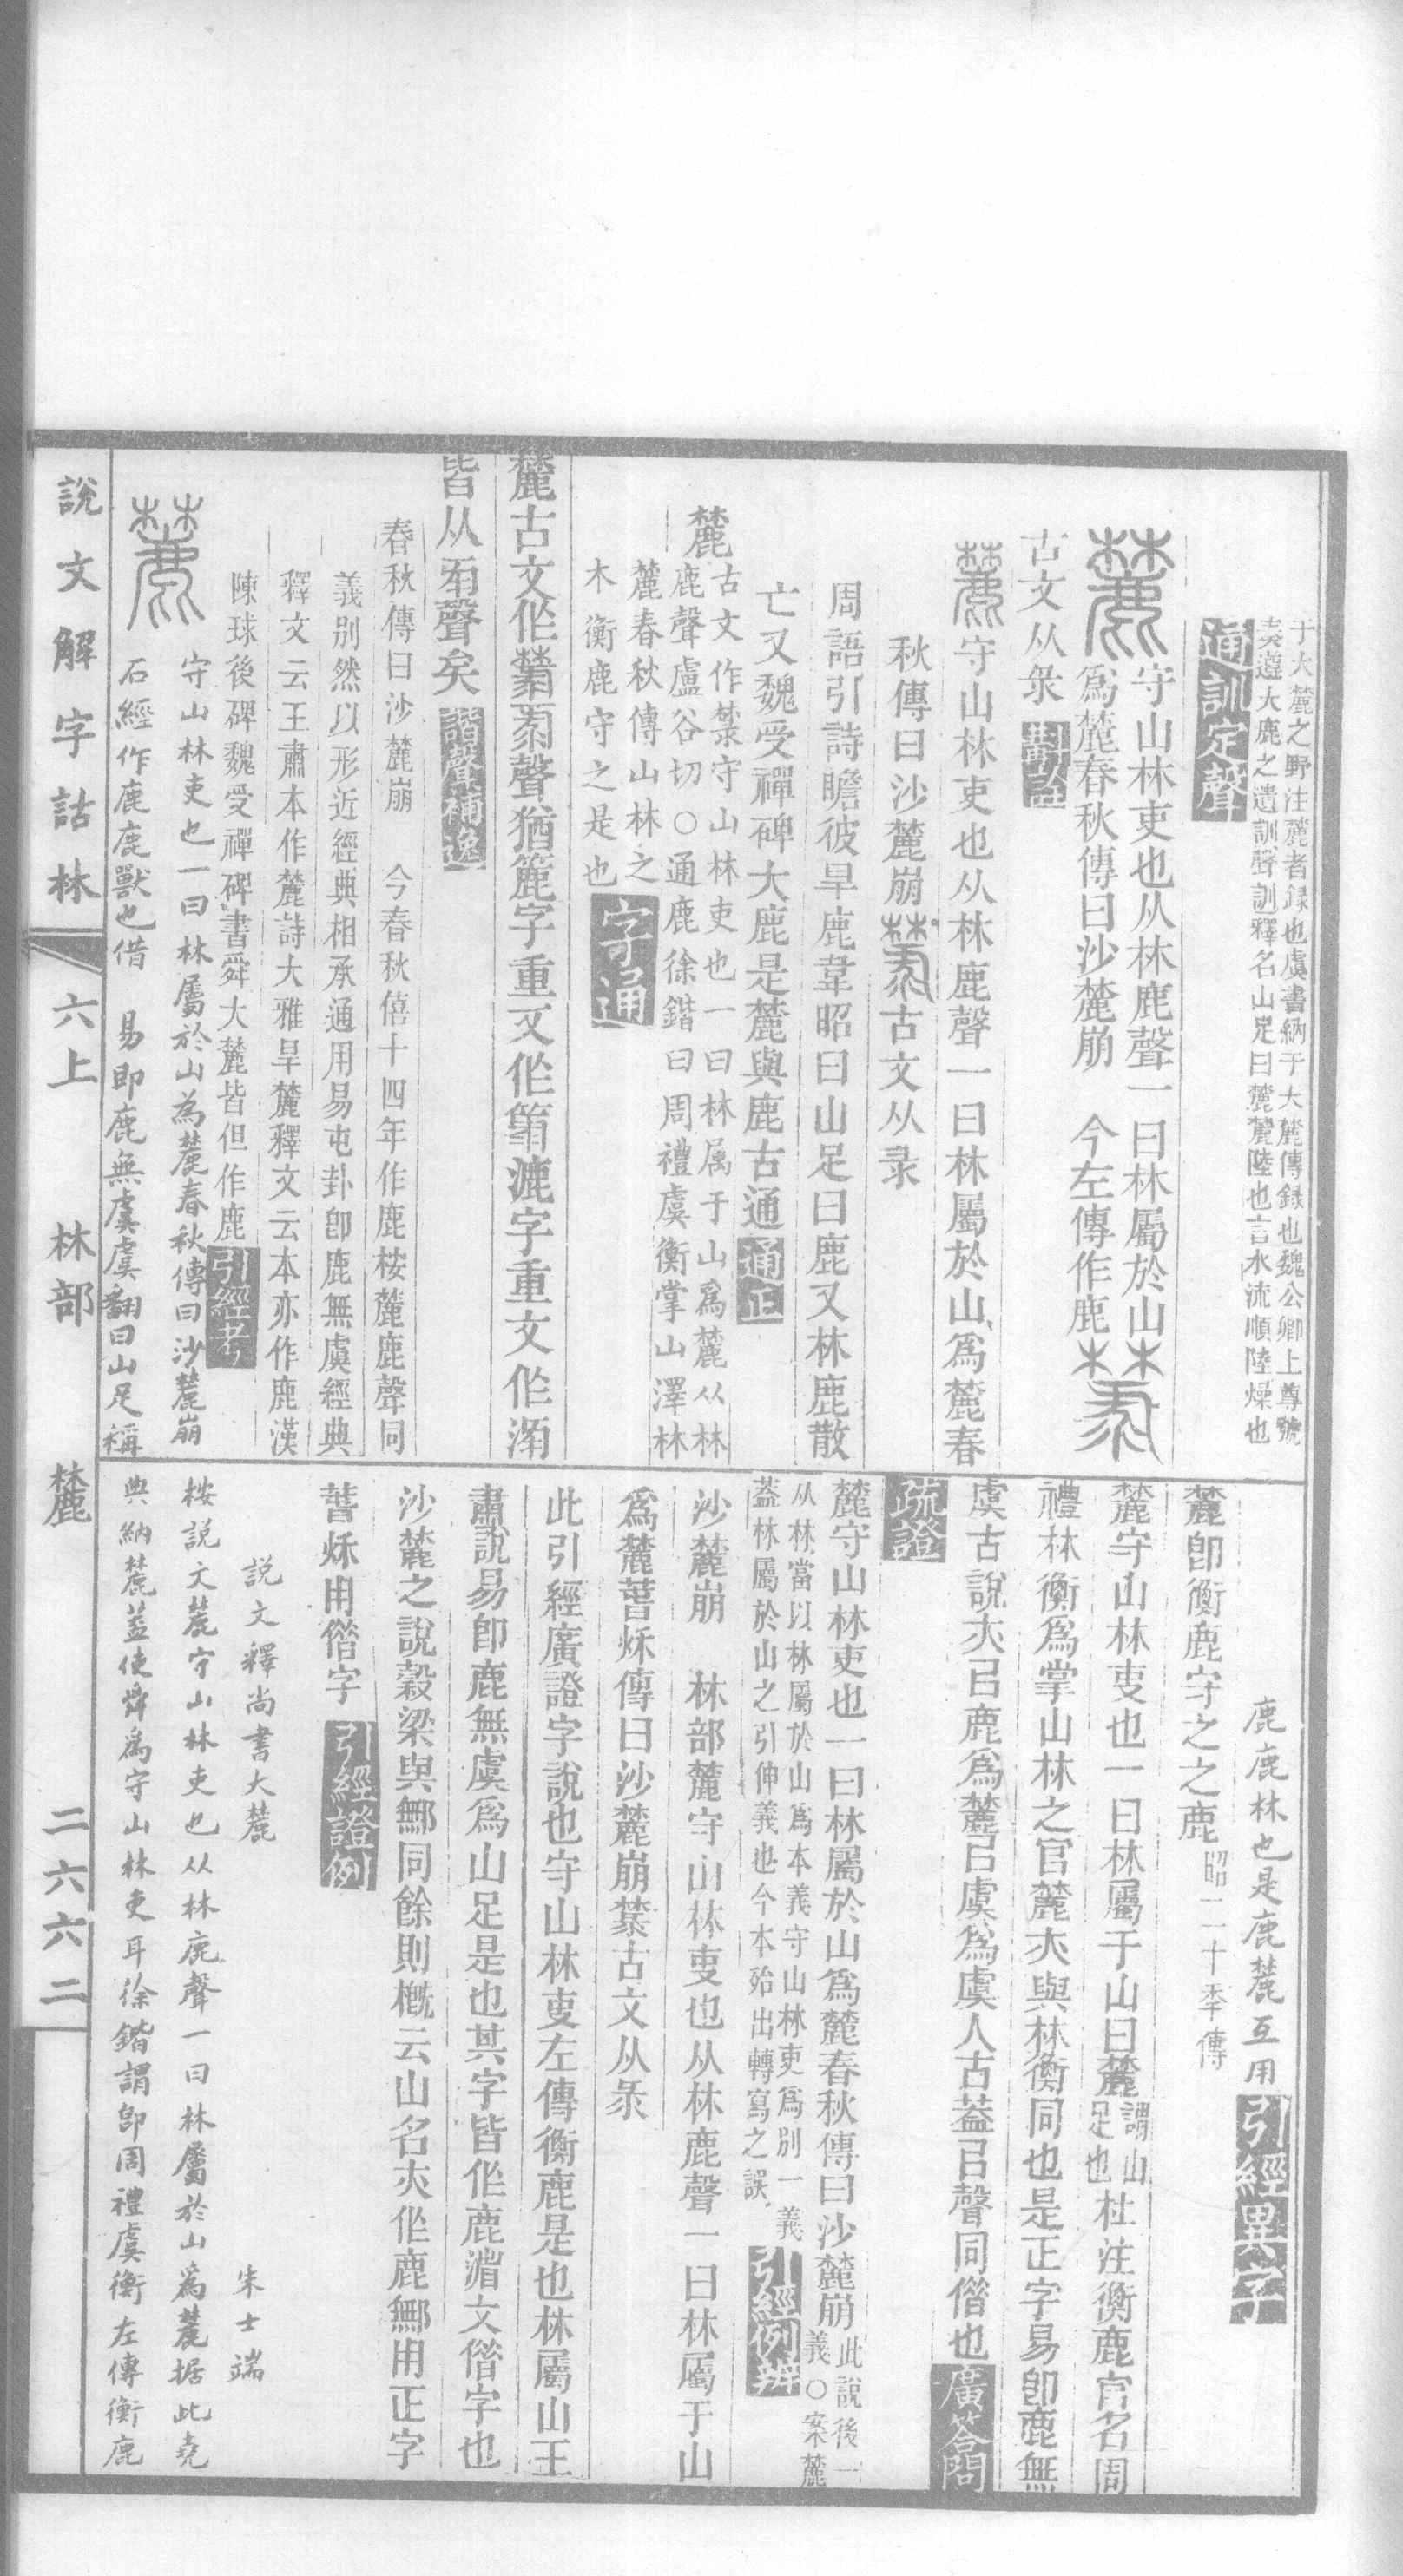 于大麓之野注麓者録也虞書納于大麓傳録也魏公卿上尊號
奏遵大鹿之遺訓聲訓釋名山足曰麓麓陸也言水流順陸燥也
通訓定聲
守山林吏也从林鹿聲一曰林屬於山
爲麓春秋傳曰沙麓崩　今左傳作鹿
古文从彔
麓守山林吏也从林鹿聲一曰林屬於山爲麓春
秋傳曰沙麓崩 古文从录
周語引詩瞻彼旱鹿韋昭曰山足曰鹿又林鹿散
亡又魏受禪碑大鹿是麓與鹿古通 通正
麓 古文作禁守山林吏也一曰林属于山爲麓从林
鹿聲盧谷切○通鹿徐鍇曰周禮虞衡掌山澤林
麓春秋傳山林之
木衡鹿守之是也 字通
麓古文作 聲猶簏字重文作箓漉字重文作淥
皆从 聲矣 諧聲補逸
春秋傳曰沙麓崩　今春秋僖十四年作鹿桉麓鹿聲同
義別然以形近經典相承通用易屯卦卽鹿無虞經典
釋文云王肅本作麓詩大雅旱麓釋文云本亦作鹿漢
陳球後碑魏受禪碑書舜大麓皆但作鹿 引經考
麓 守山林吏也一曰林屬於山為麓春秋傳曰沙麓崩
石經作鹿鹿獸也借　易即鹿無虞虞翻曰山足稱
鹿鹿林也是鹿麓互用 引經異字
麓卽衡鹿守之之鹿 昭二十季傳
麓守山林吏也一曰林屬于山曰麓 謂山足也 杜注衡鹿官名周
禮林衡爲掌山林之官麓亦與林衡同也是正字易卽鹿無
虞古說亦㠯鹿爲麓㠯虞爲虞人古蓋㠯聲同借也 廣答問
疏證
麓守山林吏也一曰林屬於山爲麓春秋傳曰沙麓崩 此說後一義○案麓
从林當以林屬於山爲本義守山林吏爲別一義
蓋林屬於山之引伸義也今本殆出轉寫之誤 引經例辨
沙麓崩　林部麓守山林吏也从林鹿聲一曰林屬于山
爲麓萅秌傳曰沙麓崩禁古文从彔
此引經廣證字說也守山林吏左傳衡鹿是也林屬山王
肅說易卽鹿無虞爲山足是也其字皆作鹿渻文偕字也
沙麓之說穀梁與鄦同餘則槪云山名亦作鹿鄦用正字
萅秌用偕字 引經證例
說文釋尚書大麓　朱士端
桉說文麓守山林吏也从林鹿聲一曰林屬於山爲麓据此堯
典納麓蓋使舜爲守山林吏耳徐鍇謂卽周禮虞衡左傳衡鹿
說文解字詁林　六上　林部　麓　二六六二